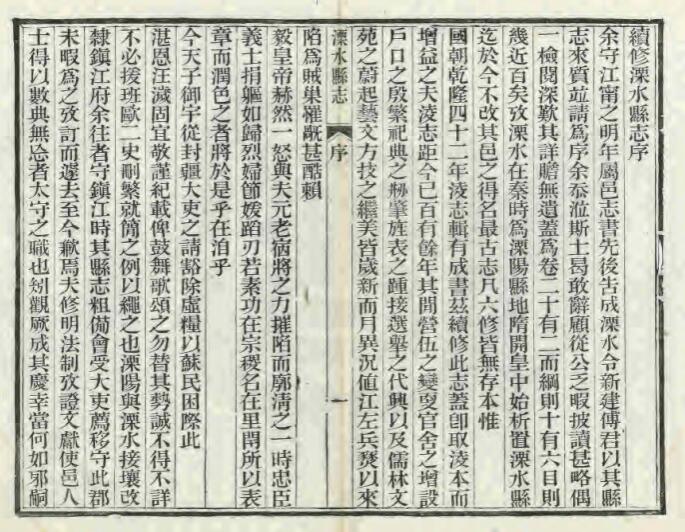 續修溧水縣志序
余守江甯之明年屬邑志書先後告成溧水令新建傅君以其縣
志來質竝請爲序余忝涖斯土曷敢辭顧從公之暇披讀甚略偶
一檢閱深歎其詳贍無遺蓋爲卷二十有二而綱則十有六目則
幾近百矣攷溧水在秦時爲溧陽縣地隋開皇中始析置溧水縣
迄於今不改其邑之得名最古志凡六修皆無存本惟
國朝乾隆四十二年淩志輯有成書茲續修此志蓋卽取淩本而
增益之夫淩志距今已百有餘年其間營伍之變叓官舍之增設
戶口之殷繁祀典之肇旌表之踵接選舉之代興以及儒林文
苑之蔚起藝文方技之繼美皆歲新而月異況値江左兵燹以來
溧水縣志 序 一
陷爲賊巢罹旤甚酷賴
毅皇帝赫然一怒與夫元老宿將之力摧陷而廓清之一時忠臣
義士捐軀如歸烈婦節媛蹈刃若素功在宗稷名在里閈所以表
章而潤色之者將於是乎在洎乎
今天子御宇從封疆大吏之請豁除虛糧以蘇民困際此
湛恩汪濊固宜敬謹紀載俾鼓舞歌頌之勿替其勢誠不得不詳
不必援班歐二史刪繁就簡之例以繩之也溧陽與溧水接壤改
隸鎮江府余往者守鎮江時其縣志粗備會受大吏薦移守此郡
未暇爲之攷訂而遽去至今歉焉夫修明法制攷證文獻使邑人
士得以數典無忘者太守之職也矧觀厥成其慶幸當何如邪嗣